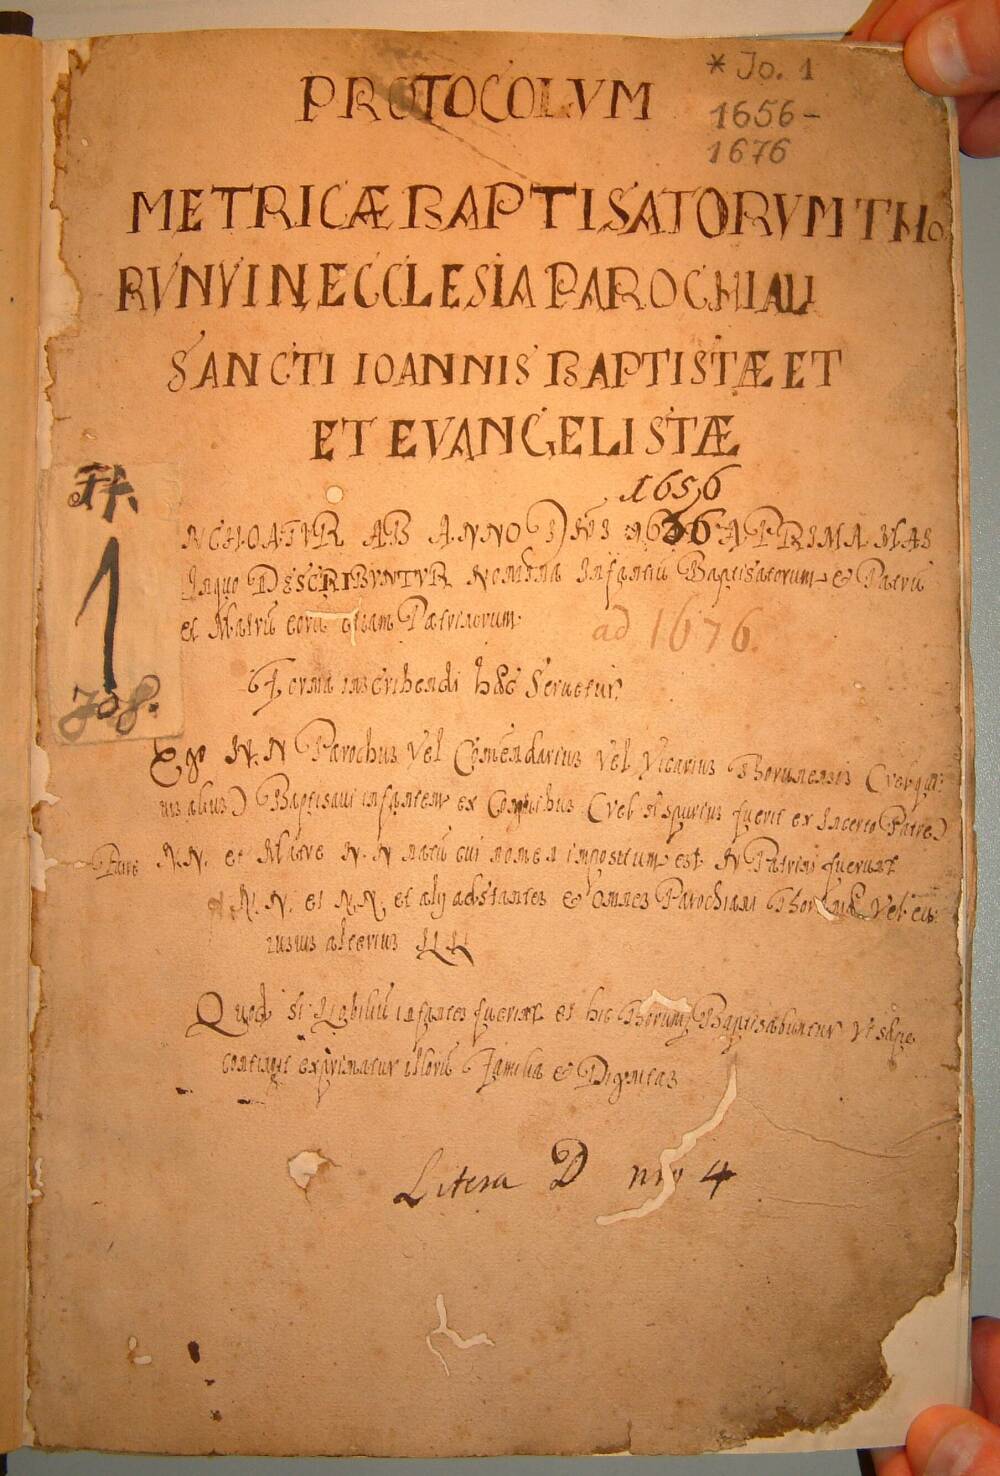 PROTOCOLVM
* Jo. 1
1656-
1676
METRICÆ BAPTISATORVM THO
RVNVI IN ECCLESIA PAROCHIALI
SANCTI IOANNIS BAPTISTÆ ET
ET EVANGELISTÆ
1656
NCHOATVR AB ANNO A PRIMA MAII
Inquo DESCRIBVNTVR Nomina Infantiū Baptisatorum & Patrū
et Matrū eorū etiam Patrinorum
ad 1676.
Forma inscribendi hæc Seruetur
1
Jos.
Ego N. N Parochus Vel Comendarius Vel Vicarius Thorunensis
ius alius) Baptisaui infantem ex Coniugibus (vel si spurius fuerit ex Incerto Patre)
Patre N. N. et Matre N. N natū cui nomen impositum est N Patrini fuerunt
N. N. et N. N. et alij adstantes & omnes Parochiani Vel cu
iusuis alterius
Quod si Nobiliū infantes fuerint et hic Thoruny Baptisabuntur Vt sæpe
contingit exprimatur illorū Familia & Dignitas
Litera D nro 4